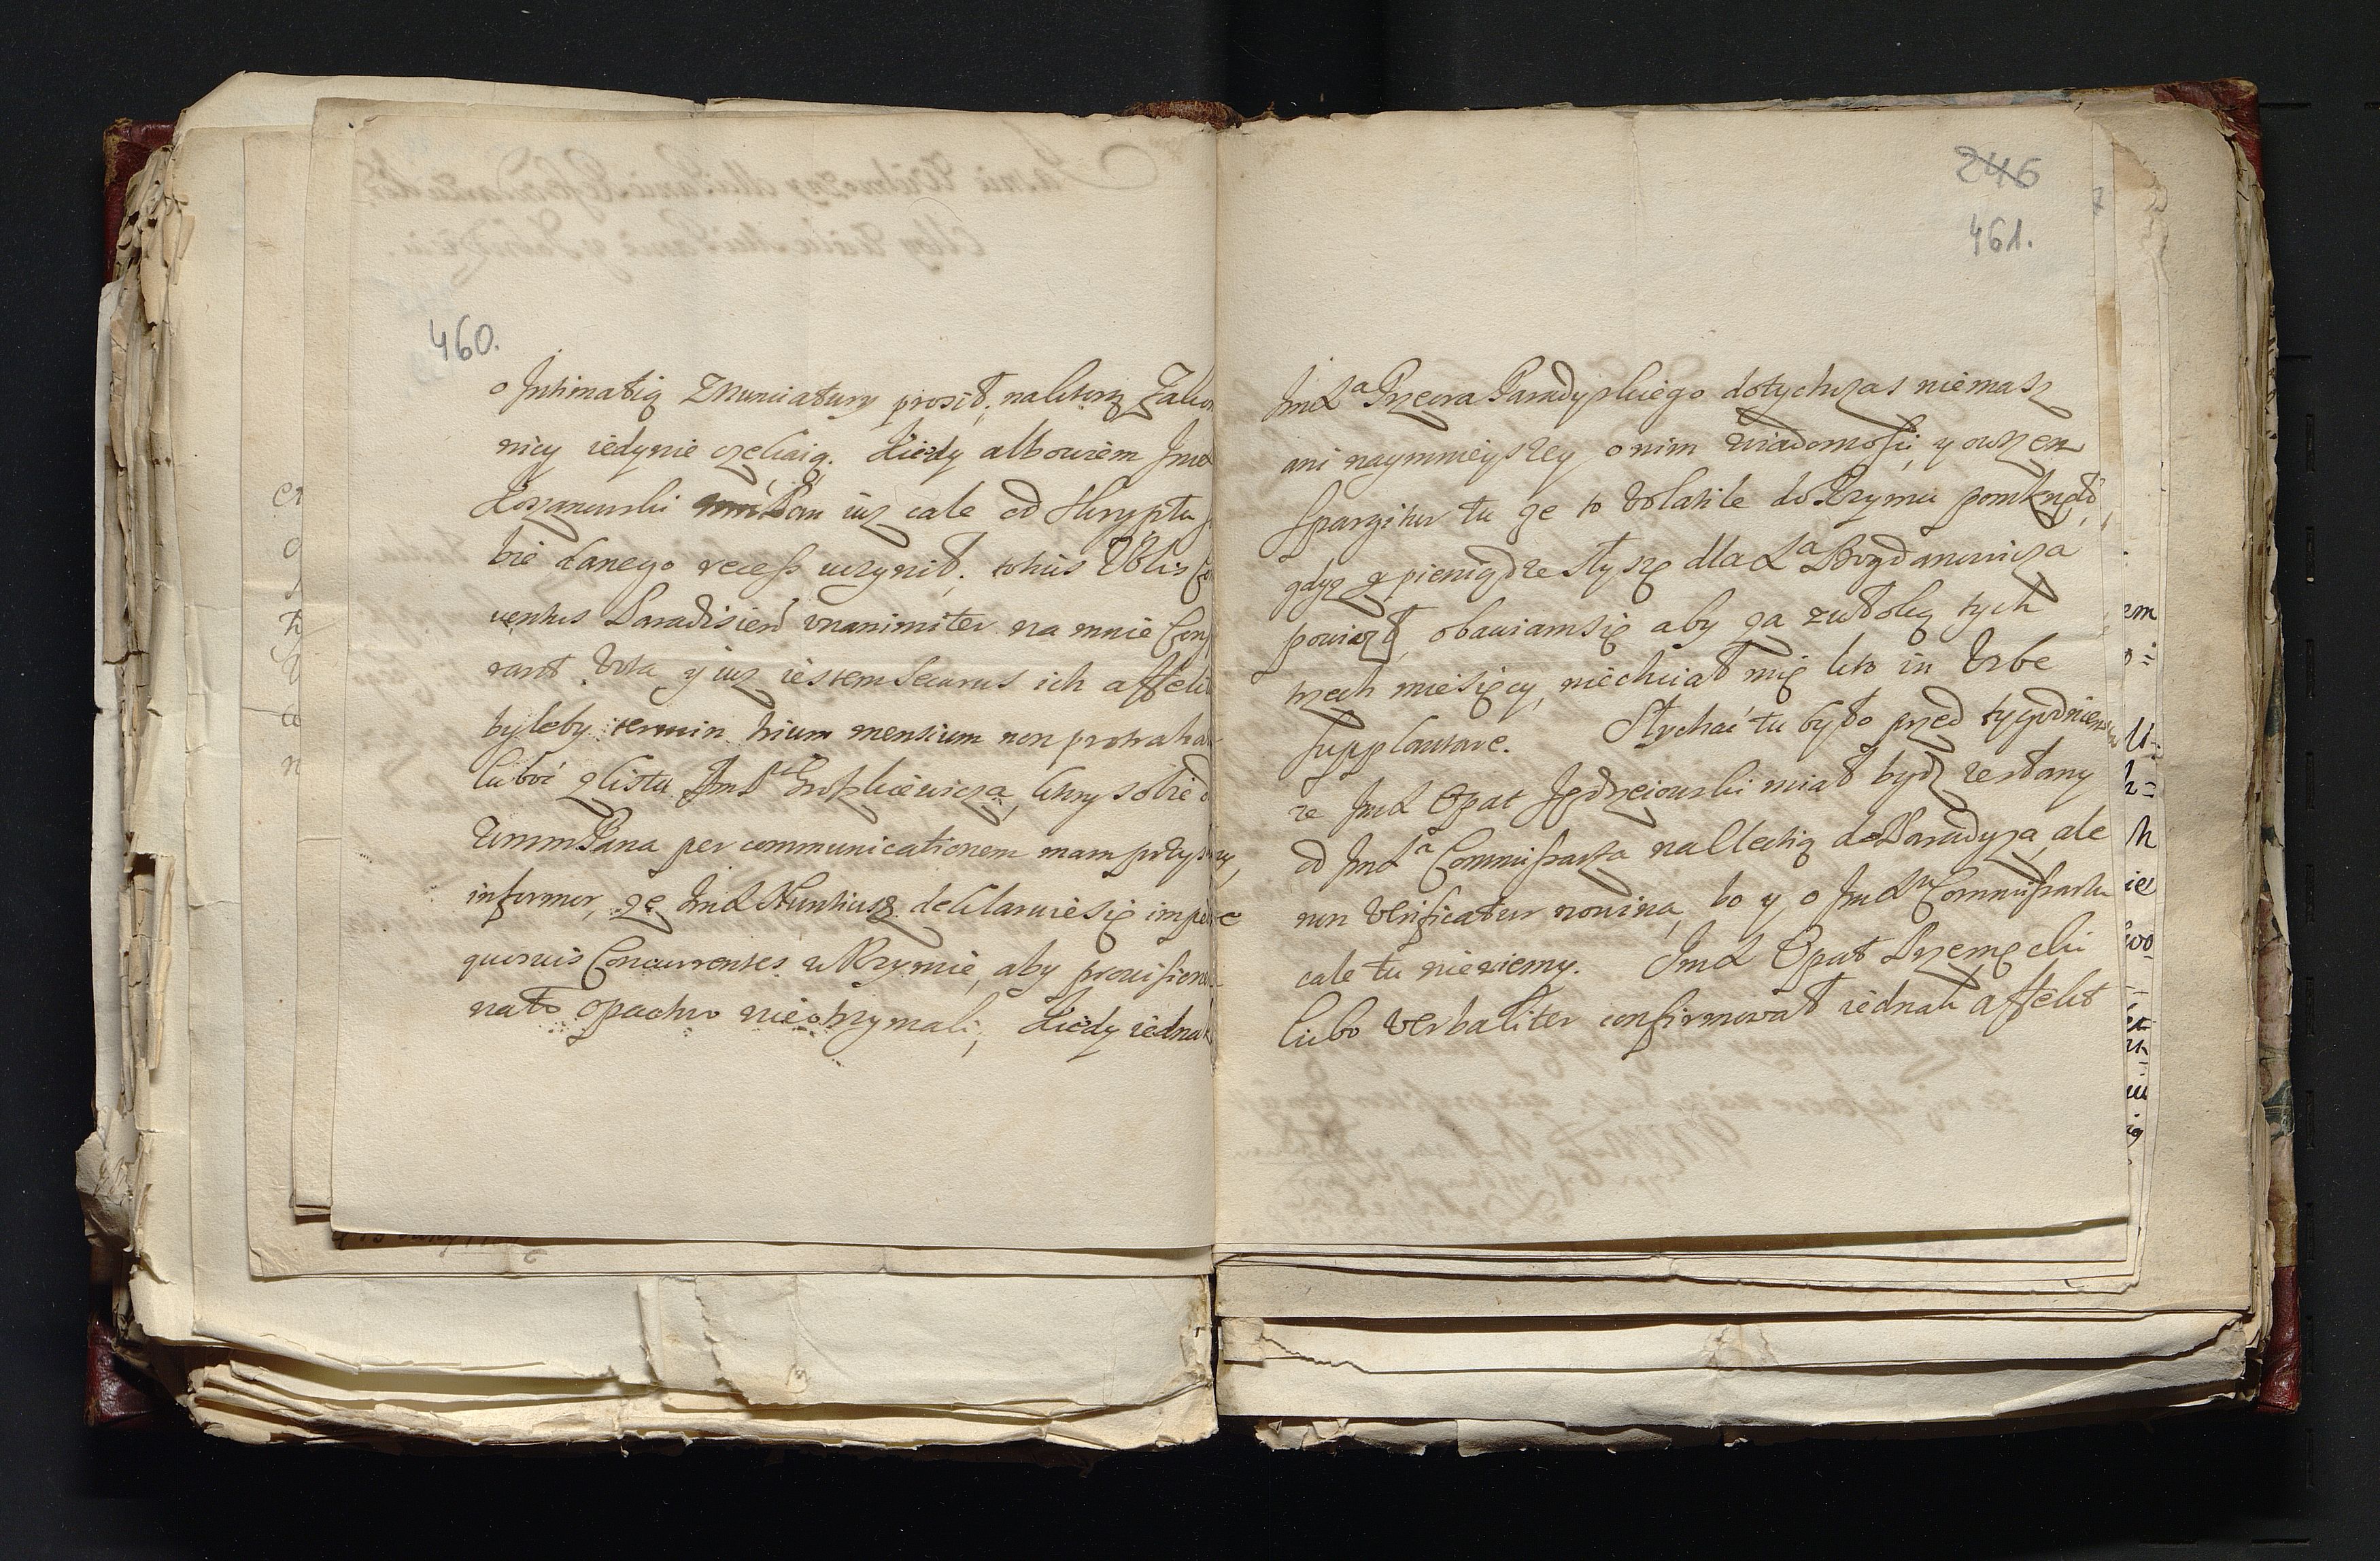 460.
o Intimatią z Nunciatury prosił, na ktorą Zakon
nicy iedynie czekaią. Kiedy albowiem Jmć
Koszanowski Pan iuż cale od skryptu
bie danego recess uczynił, totius Vblis Con
ventus Paradisień unanimiter na mnie
rant Vota y iuż iestem securus ich affekt
byleby termin trium mensium non protraha
luboć z listu JmX Groszkiewicza, ktory sobie
WmmPana per communicationem mam przysłany,
informor, że JmX Nuntiusz deklaruie się impedire
quosvis Concurrentes w Rzymie, aby prouisiem
na to opactwo nie otrzymali; Kiedy iednak
246
461.
JmXa Przeora Paradyskiego dotychczas niemasz
ani naymnieyszey o nim wiadomości, y owszem
spargitur tu że to Volatile do Rzymu pomknęło,
gdyż y pieniądze słyszę dla Xa Bogdanowicza
powiozł, obawiam się aby za zwłoką tych
trzech miesięcy, niechciał mię kto in Urbe
supplantare. Słychać tu było przed tygodniem
że JmX Opat Jędrzeiowski miał bydź zesłany
od JmXa Commissarza na Elekcią do Paradyża, ale
non verificatur nowina, bo y o JmXu Commissarzu
cale tu niewiemy. JmX Opat Przemęcki
lubo verbaliter confirmował iednak affekt